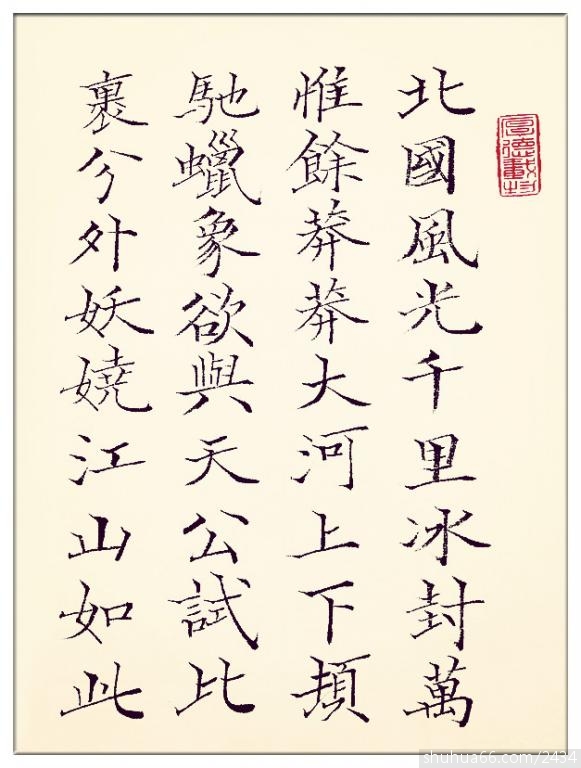 北國風光千里冰封萬
惟餘莽莽大河上下頓
馳蠟象欲與天公試比
裹分外妖嬈江山如此
厚德載物
shuhua66.com/2434